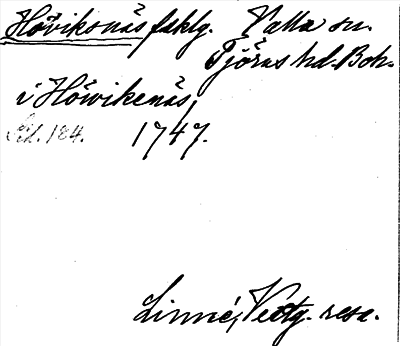 Höviksnäs fsklg. Valla sn.
Tjörns hd. Boh.
i Höwikenäs,
Sid. 184. 1747.
Linné, Vestg. resa.